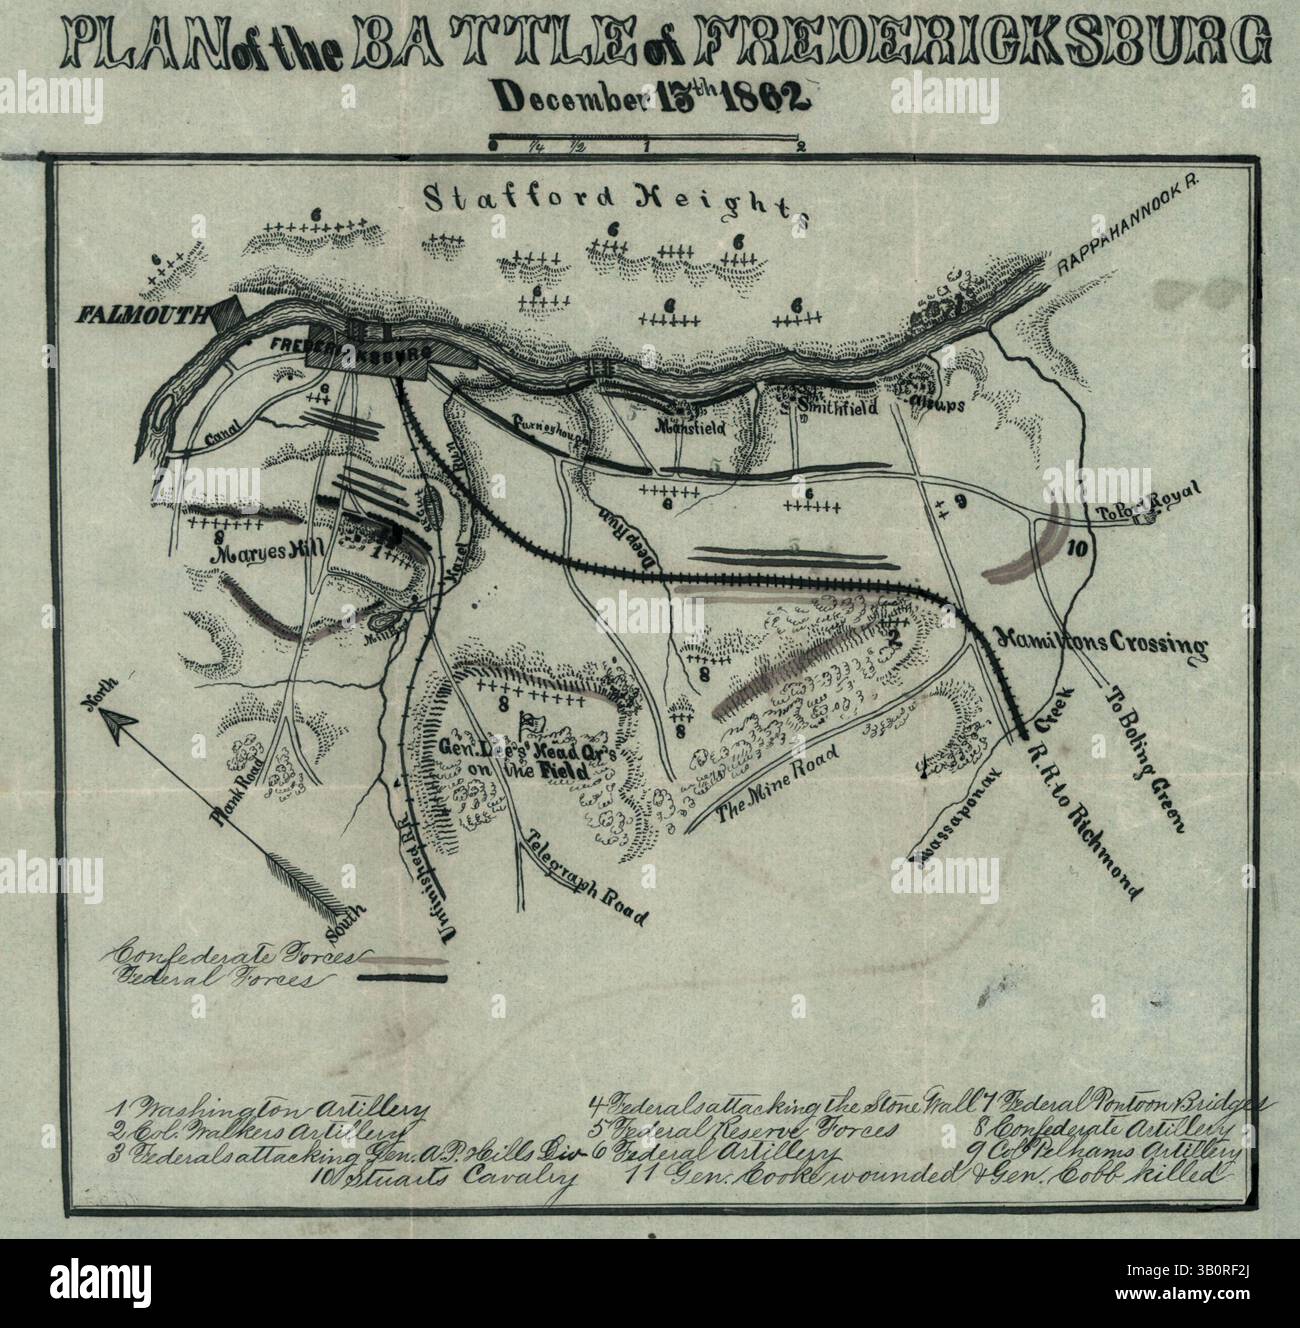 PLAN of the BATTLE of FREDERICKSBURG
December 13th 1862
0 1/4 1/2 1 2
Stafford Heights
RAPPAHANNOCK R.
6 6 6 6 6
6 6 6
FALMOUTH
FREDERICKSBURG
6
Canal
Mansfield
Smithfield
Alsups
Run
5
5
6 6 9
To Port Royal
8
Maryes Hill
1
Hazel
Deep Run
5
10
Mill
2
8
8
8
Hamiltons Crossing
North
Gen. Lee's Head Qr's
on the Field
Plank Road
The Mine Road
Massaponax
Creek
R.R. to Richmond
To Boling Green
Telegraph Road
Unfinished R.R.
South
Confederate Forces
Federal Forces
1 Washington Artillery 4 Federals attacking the Stone Wall 7 Federal Pontoon Bridges
2 Col. Walkers Artillery 5 Federal Reserve Forces 8 Confederate Artillery
3 Federals attacking Gen. A.P. Hills Div 6 Federal Artillery 9 Col Pelhams Artillery
10 Stuarts Cavalry 11 Gen. Cooke wounded & Gen. Cobb killed
alamy
Image ID: 3B0RF2J
www.alamy.com